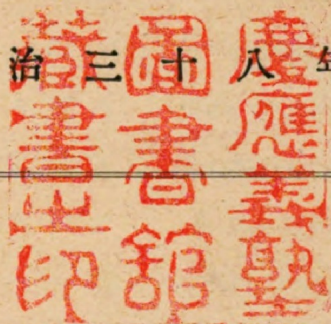 治三十八年
慶應義塾
圖書館
藏書之印